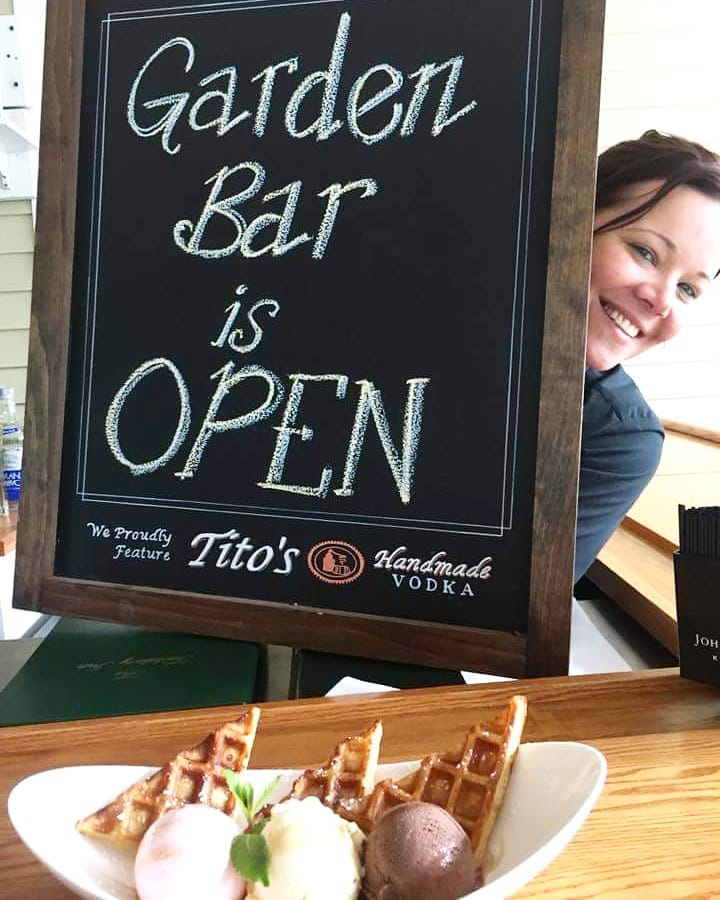 Garden
Bar
is
OPEN
We Proudly
Feature
Tito's
Handmade
VODKA
The
JOH